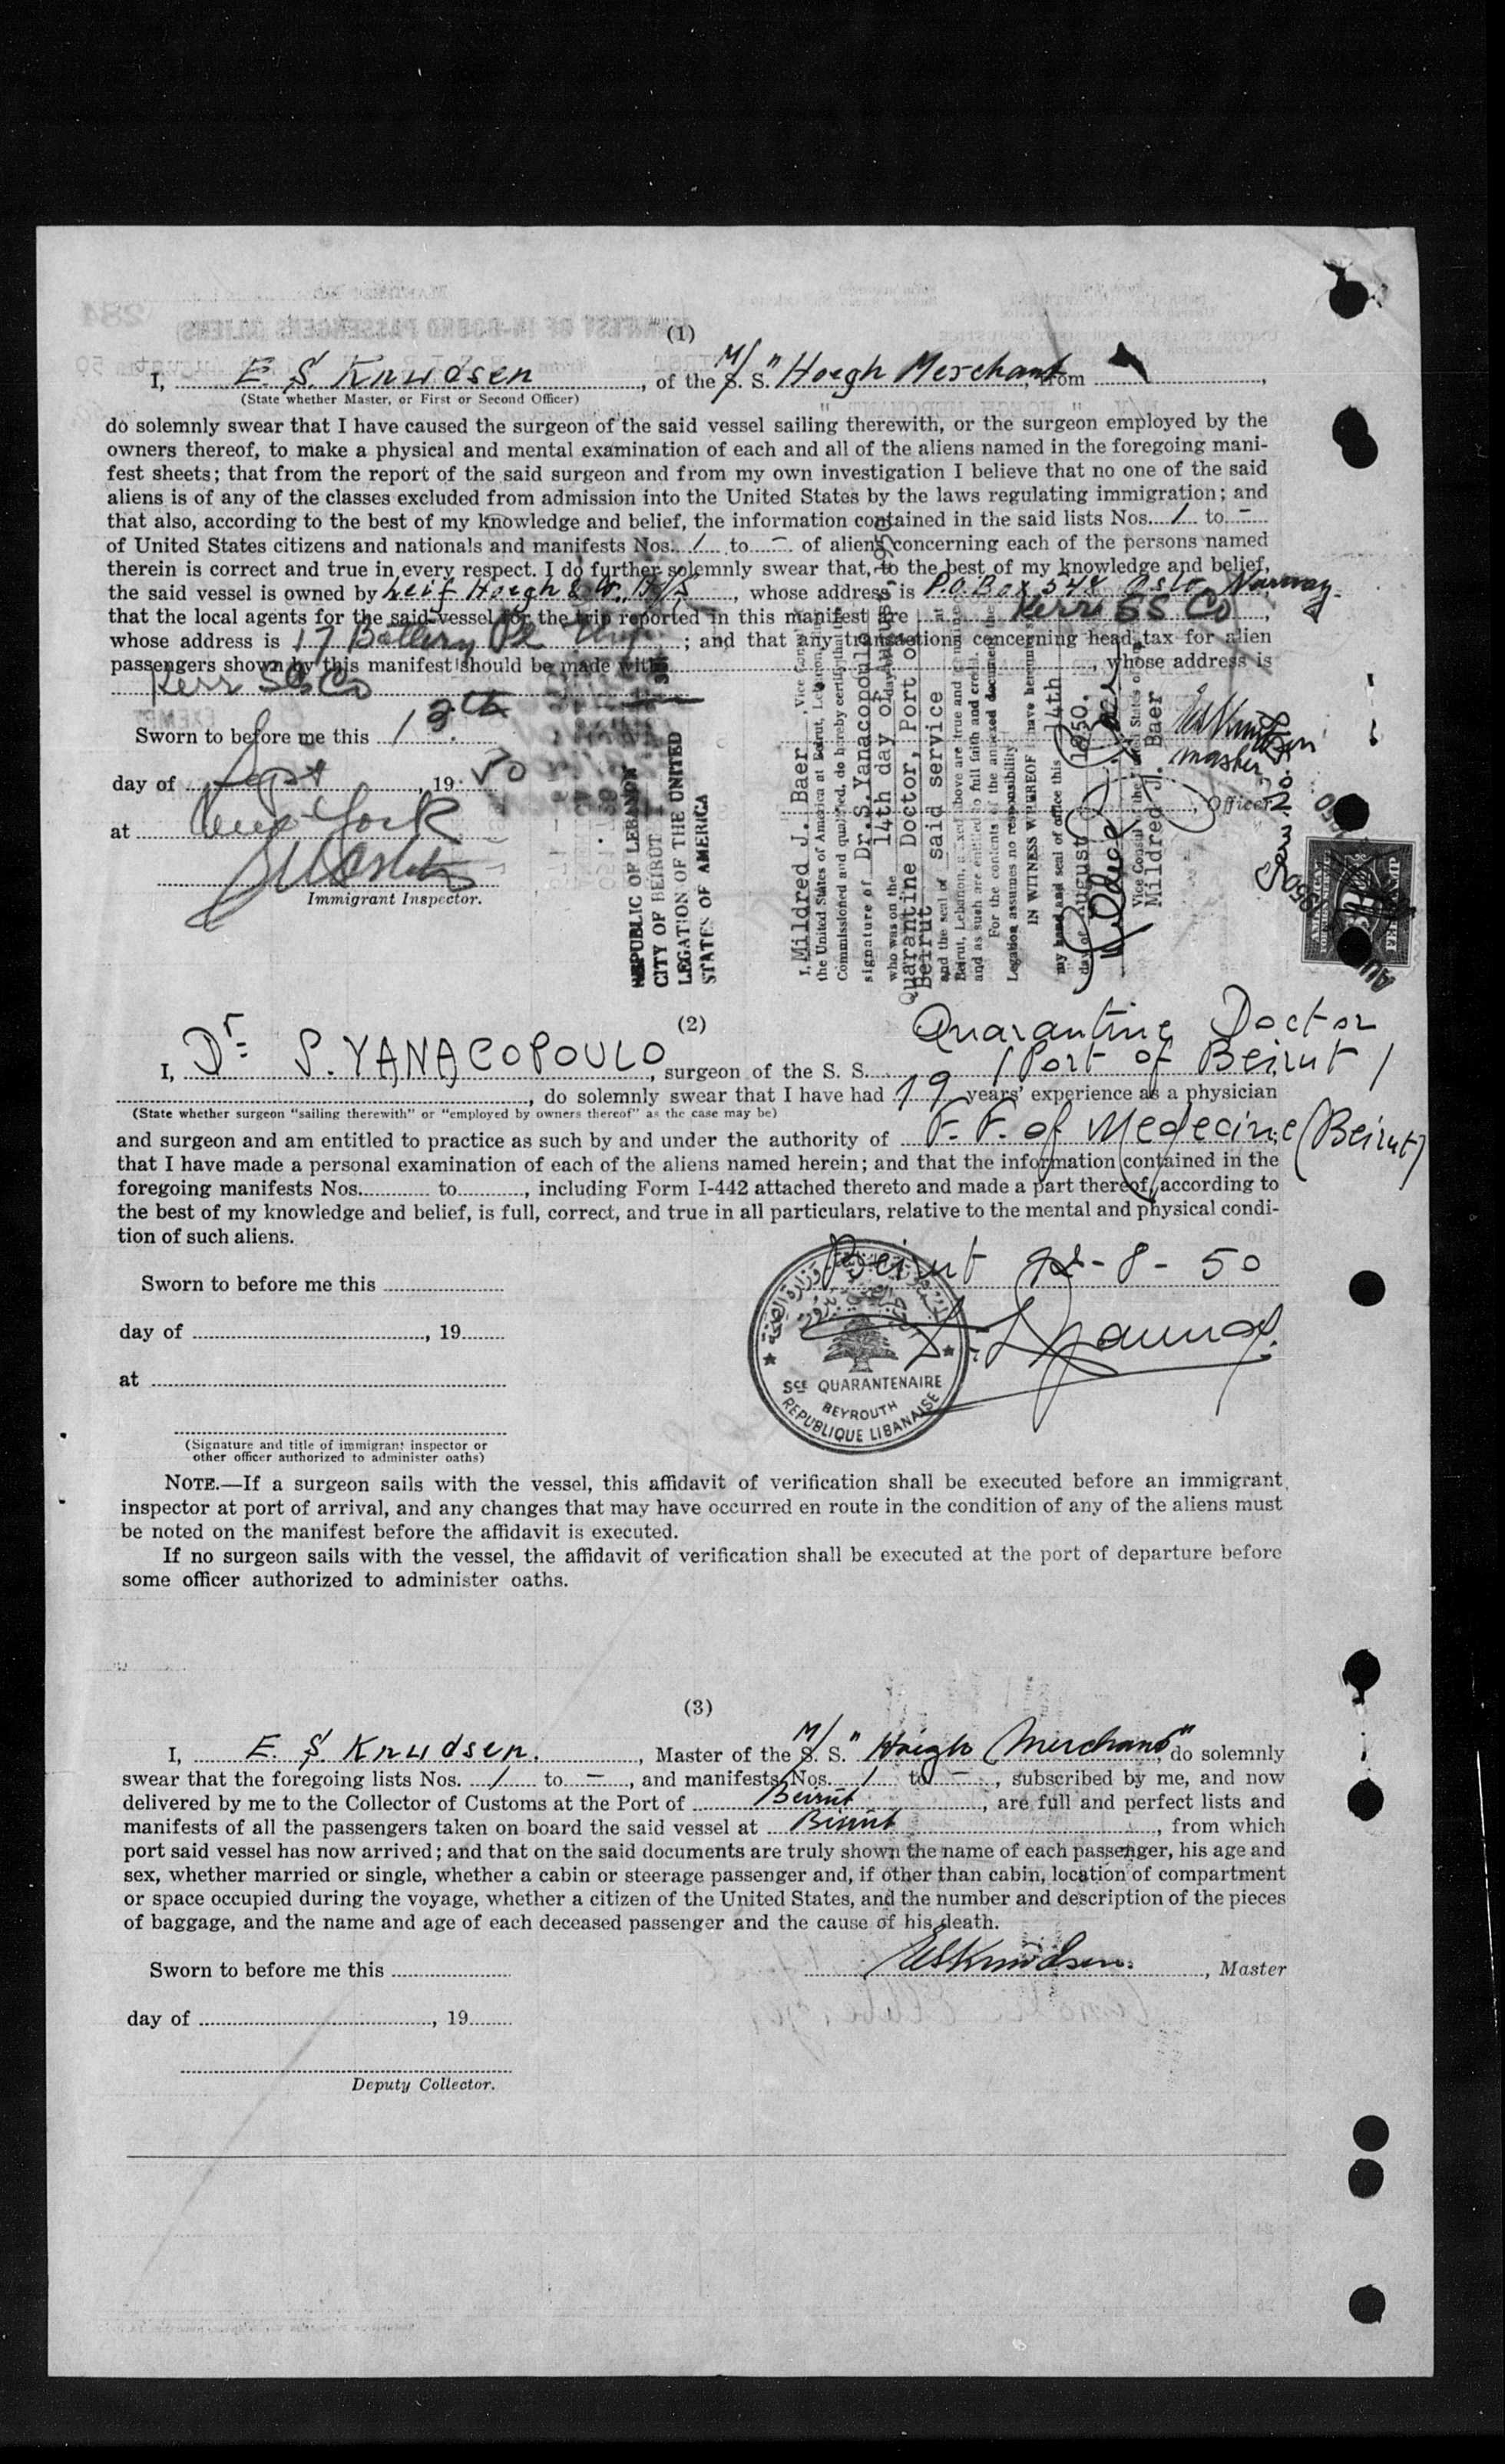 (1)
I, E. S. Knudsen, of the M/S. S. "Hoegh Merchant, from
(State whether Master, or First or Second Officer)
do solemnly swear that I have caused the surgeon of the said vessel sailing therewith, or the surgeon employed by the
owners thereof, to make a physical and mental examination of each and all of the aliens named in the foregoing mani-
fest sheets; that from the report of the said surgeon and from my own investigation I believe that no one of the said
aliens is of any of the classes excluded from admission into the United States by the laws regulating immigration; and
that also, according to the best of my knowledge and belief, the information contained in the said lists Nos. 1 to -
of United States citizens and nationals and manifests Nos. 1 to - of aliens concerning each of the persons named
therein is correct and true in every respect. I do further solemnly swear that, to the best of my knowledge and belief,
the said vessel is owned by Leif Hoegh & Co. A/S, whose address is P.O. Box 548 Oslo Norway
that the local agents for the said vessel for the trip reported in this manifest are Kerr SS Co,
whose address is 17 Battery Pl ; and that any transactions concerning head tax for alien
passengers shown by this manifest should be made with , whose address is
Kerr SS Co
Sworn to before me this 12th
day of Sept, 19 50
at New York
Immigrant Inspector.
REPUBLIC OF LEBANON
CITY OF BEIRUT
LEGATION OF THE UNITED
STATES OF AMERICA
I, Mildred J. Baer, Vice Consul
the United States of America at Beirut, Lebanon
Commissioned and qualified, do hereby certify that the
signature of Dr.S.Yanacopoulo
who was on the 14th day of August 1950
Quarantine Doctor, Port of
Beirut
and the seal of said service at
Beirut, Lebanon, affixed above are true and genuine
and as such are entitled to full faith and credit.
For the contents of the annexed document the
Legation assumes no responsibility.
IN WITNESS WHEREOF I have hereunto set
my hand and seal of office this 14th
day of August 1950.
Mildred J. Baer
Vice Consul of the United States of
Mildred J. Baer
master
, Officer
AMERICAN
FEE STAMP
(2)
Quarantine Doctor
I, Dr S. YANACOPOULO, surgeon of the S. S. (Port of Beirut)
, do solemnly swear that I have had 19 years' experience as a physician
(State whether surgeon "sailing therewith" or "employed by owners thereof" as the case may be)
and surgeon and am entitled to practice as such by and under the authority of F. F. of Medecine (Beirut)
that I have made a personal examination of each of the aliens named herein; and that the information contained in the
foregoing manifests Nos. to , including Form I-442 attached thereto and made a part thereof, according to
the best of my knowledge and belief, is full, correct, and true in all particulars, relative to the mental and physical condi-
tion of such aliens.
Beirut 12-8-50
Sworn to before me this
day of , 19
at
Sce QUARANTENAIRE
BEYROUTH
REPUBLIQUE LIBANAISE
(Signature and title of immigrant inspector or
other officer authorized to administer oaths)
NOTE.—If a surgeon sails with the vessel, this affidavit of verification shall be executed before an immigrant
inspector at port of arrival, and any changes that may have occurred en route in the condition of any of the aliens must
be noted on the manifest before the affidavit is executed.
If no surgeon sails with the vessel, the affidavit of verification shall be executed at the port of departure before
some officer authorized to administer oaths.
(3)
I, E. S. Knudsen., Master of the M/S. S. "Hoegh Merchant", do solemnly
swear that the foregoing lists Nos. 1 to -, and manifests Nos. 1 to -, subscribed by me, and now
delivered by me to the Collector of Customs at the Port of Beirut, are full and perfect lists and
manifests of all the passengers taken on board the said vessel at Beirut, from which
port said vessel has now arrived; and that on the said documents are truly shown the name of each passenger, his age and
sex, whether married or single, whether a cabin or steerage passenger and, if other than cabin, location of compartment
or space occupied during the voyage, whether a citizen of the United States, and the number and description of the pieces
of baggage, and the name and age of each deceased passenger and the cause of his death.
Sworn to before me this
ESKnudsen, Master
day of , 19
Deputy Collector.